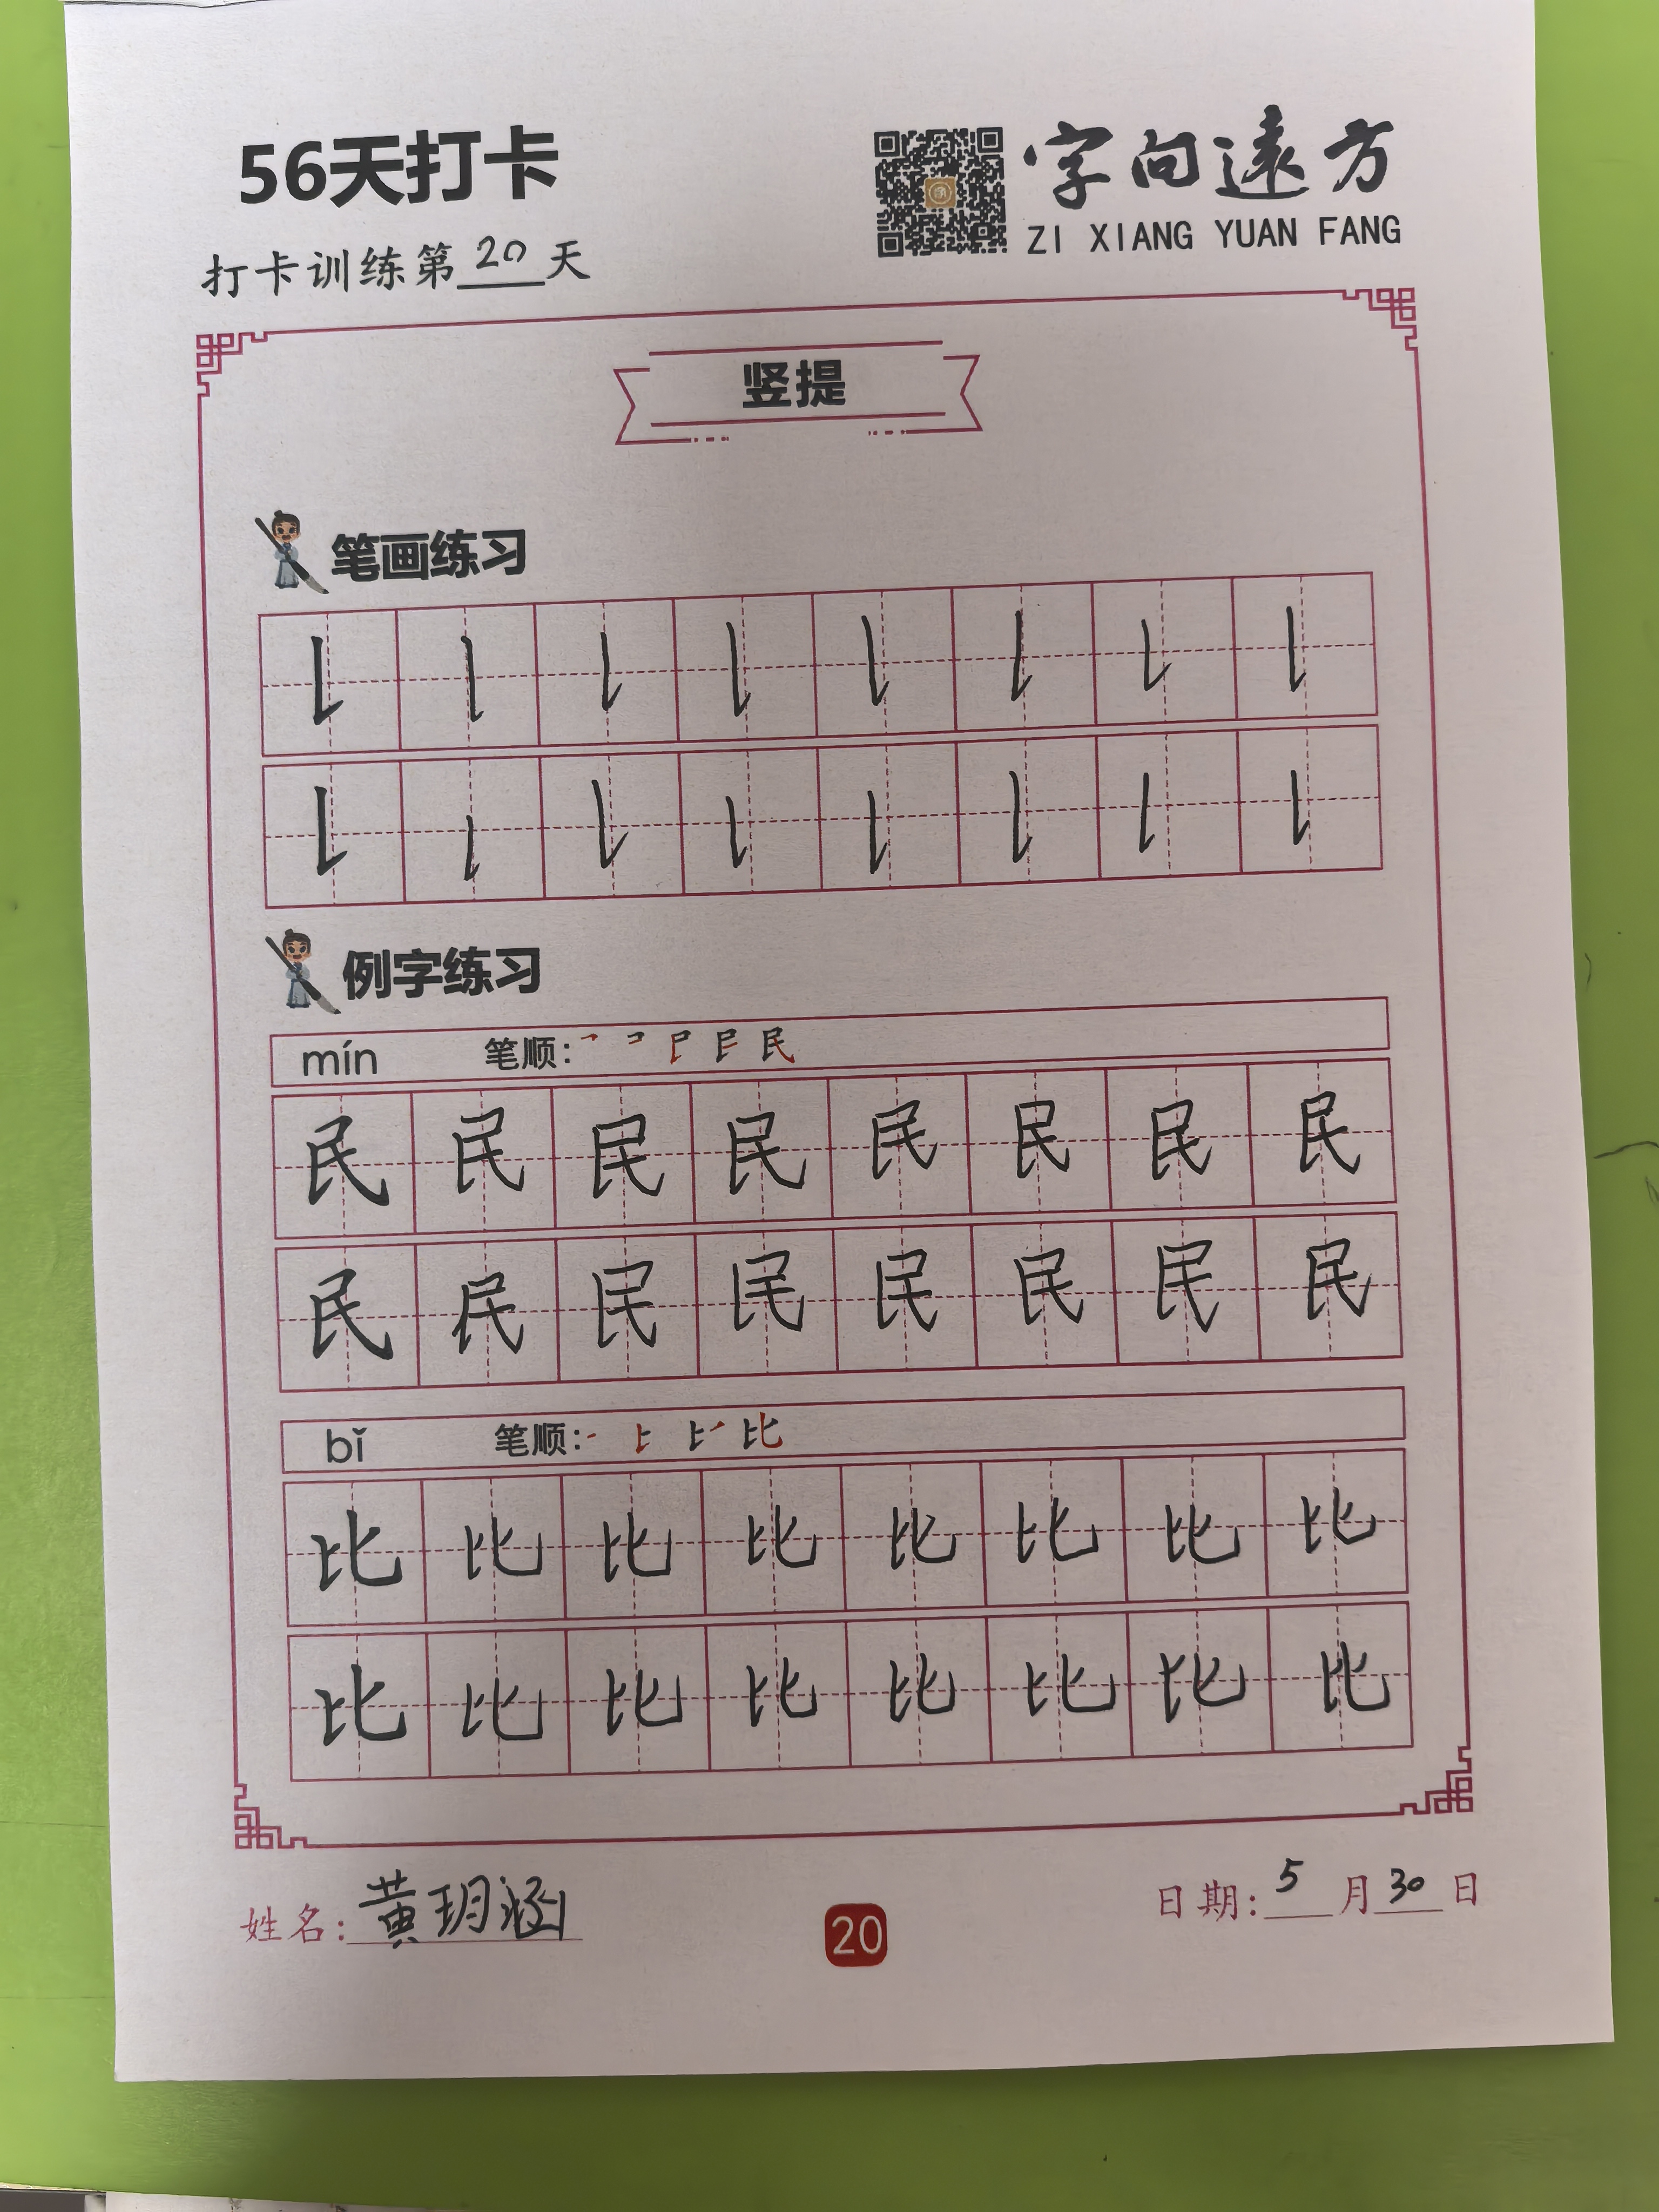 56天打卡
字向遠方
ZI XIANG YUAN FANG
打卡训练第20天
竖提
笔画练习
例字练习
mín 笔顺: 民
民 民 民 民 民 民 民 民
民 民 民 民 民 民 民 民
bǐ 笔顺: 比
比 比 比 比 比 比 比 比
比 比 比 比 比 比 比 比
姓名: 黄玥涵
20
日期: 5月30日